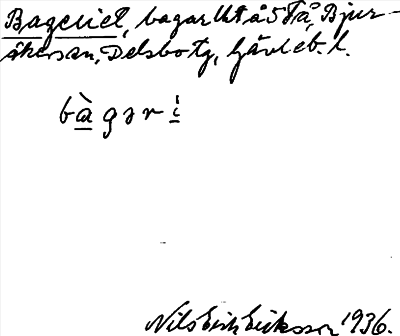 Bageriet, bagar Ut å 5 Tå, Bjur-
åkers sn, Delsbo tg, Gävleb. l.
bàgəri
Nils Erik Eriksson 1936.